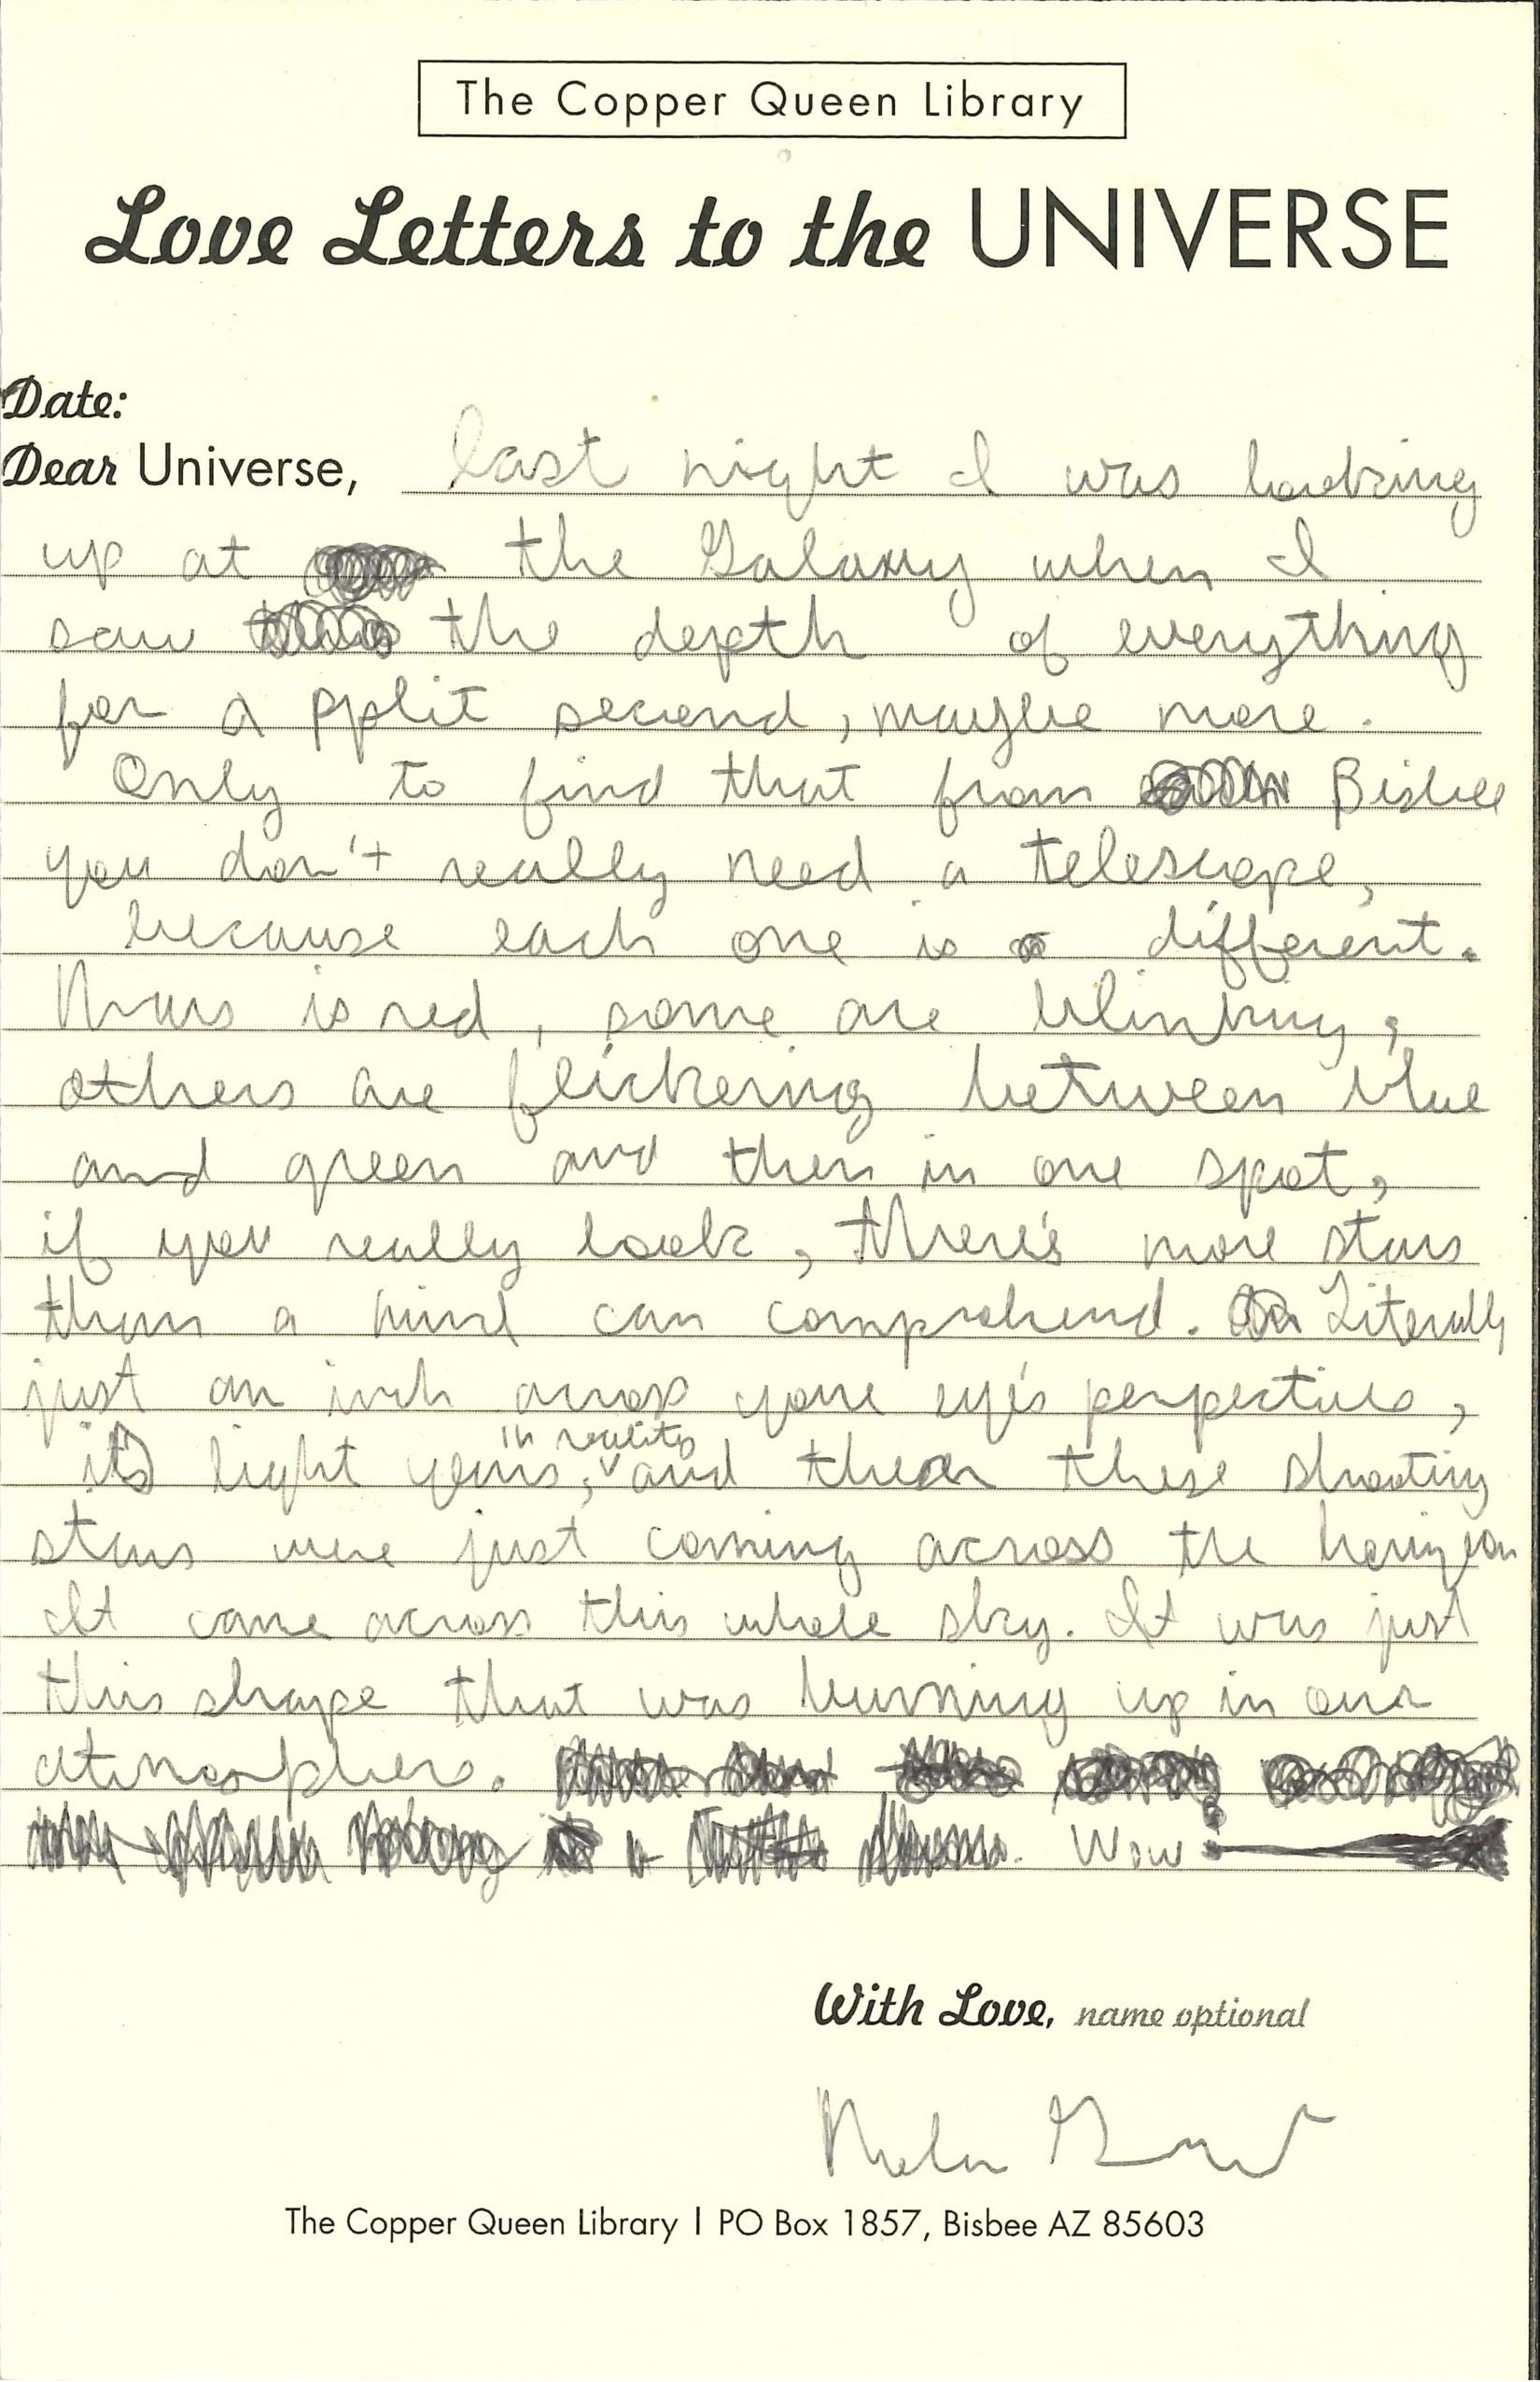 The Copper Queen Library
Love Letters to the UNIVERSE
Date:
Dear Universe, last night I was looking
up at the Galaxy when I
saw the depth of everything
for a split second, maybe more.
Only to find that from Bisbee
you don't really need a telescope,
because each one is different.
Mars is red, some are blinking,
others are flickering between blue
and green and then in one spot,
if you really look, there's more stars
than a mind can comprehend. Literally
just an inch across your eye's perspective,
in reality
it's light years, and then these shooting
stars were just coming across the horizon
It came across this whole sky. It was just
this shape that was burning up in our
atmosphere.
Wow
With Love, name optional
The Copper Queen Library | PO Box 1857, Bisbee AZ 85603